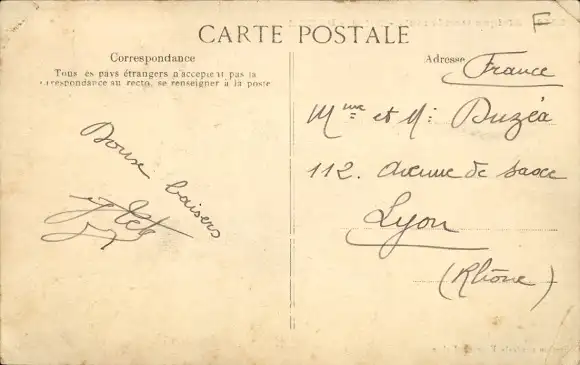 CARTE POSTALE
F
Correspondance
Tous les pays étrangers n'acceptent pas la
correspondance au recto, se renseigner à la poste
Adresse
France
Mme et Mr Duzéa
112. Avenue de Saxe
Lyon
(Rhône)
Doux baisers